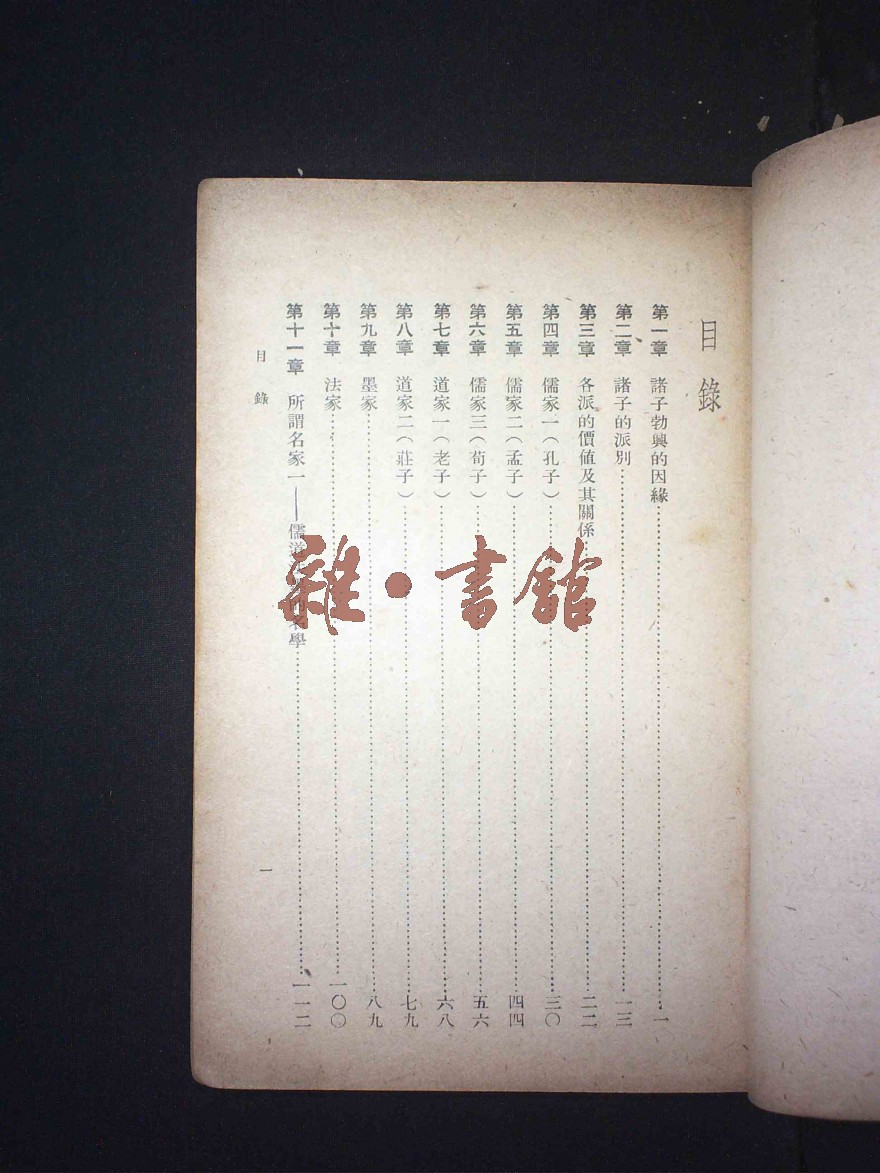 目錄
第一章 諸子勃興的因緣……一
第二章 諸子的派別……一三
第三章 各派的價值及其關係……二二
第四章 儒家一（孔子）……三〇
第五章 儒家二（孟子）……四四
第六章 儒家三（荀子）……五六
第七章 道家一（老子）……六八
第八章 道家二（莊子）……七九
第九章 墨家……八九
第十章 法家……一〇〇
第十一章 所謂名家一——儒道 的名學……一一二
目錄
一
雜·書館